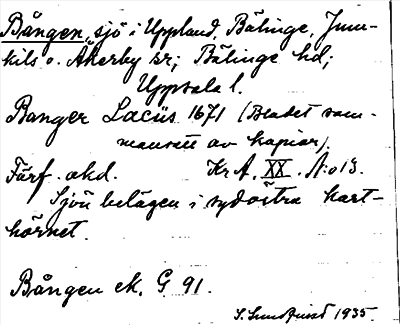 Bången, sjö i Uppland, Bälinge, Jum-
kils o. Åkerby sr; Bälinge hd;
Uppsala l.
Banger Lacüs 1671 (Bladet sam-
mansatt av kopior).
Förf. okd. Kr A. XX. N:o 13.
Sjön belägen i sydöstra kart-
hörnet.
Bången ek. G 91.
S. Lundlund 1935.